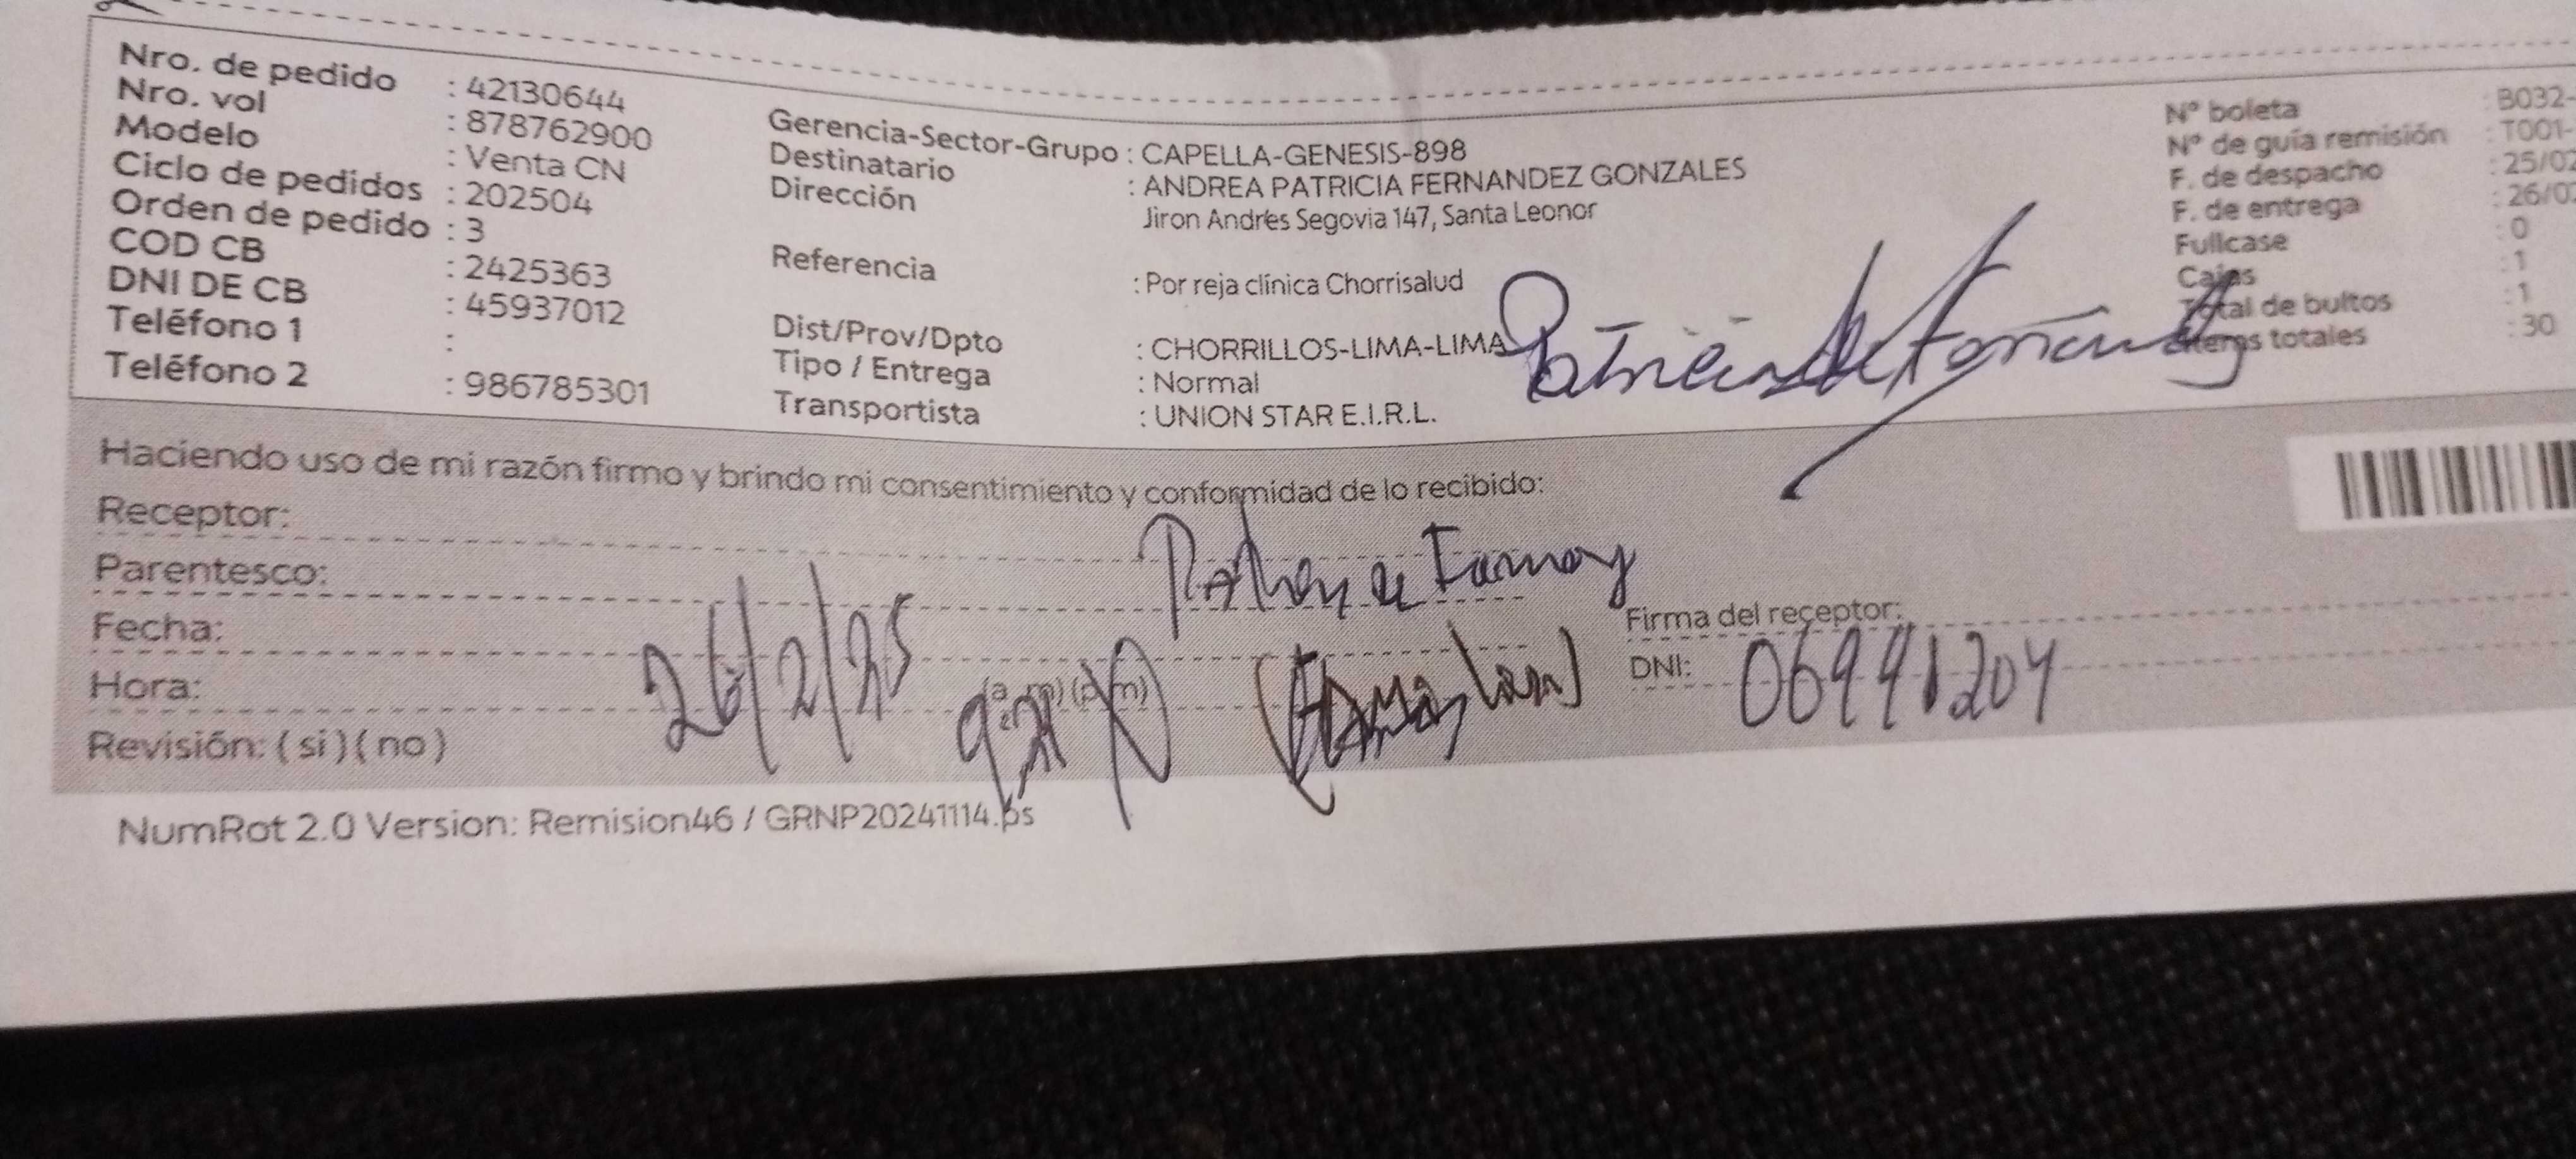 Nro. de pedido : 42130644
Nro. vol : 878762900
Modelo : Venta CN
Ciclo de pedidos : 202504
Orden de pedido : 3
COD CB : 2425363
DNI DE CB : 45937012
Teléfono 1 :
Teléfono 2 : 986785301
Gerencia-Sector-Grupo : CAPELLA-GENESIS-898
Destinatario : ANDREA PATRICIA FERNANDEZ GONZALES
Dirección Jiron Andrés Segovia 147, Santa Leonor
Referencia : Por reja clínica Chorrisalud
Dist/Prov/Dpto : CHORRILLOS-LIMA-LIMA
Tipo / Entrega : Normal
Transportista : UNION STAR E.I.R.L.
N° boleta : B032-
N° de guía remisión : T001-
F. de despacho : 25/02
F. de entrega : 26/02
Fullcase : 0
Cajas : 1
Total de bultos : 1
totales : 30
Haciendo uso de mi razón firmo y brindo mi consentimiento y conformidad de lo recibido:
Receptor:
Parentesco:
Fecha: 26/2/25
Hora: (a. m) (p. m)
Revisión: ( si ) ( no )
Firma del receptor:
DNI: 06991204
NumRot 2.0 Version: Remision46 / GRNP20241114.ps